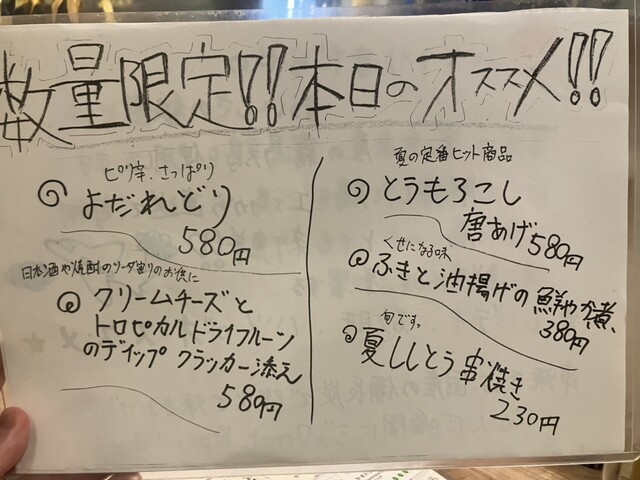 数量限定!! 本日のオススメ!!
ピリ辛、さっぱり
よだれどり
580円
日本酒や焼酎のソーダ割りのお供に
クリームチーズと
トロピカルドライフルーツ
のディップ クラッカー添え
580円
夏の定番ヒット商品
とうもろこし
唐あげ 580円
くせになる味
ふきと油揚げの鮮やか煮
380円
旬です。
夏ししとう串焼き
230円